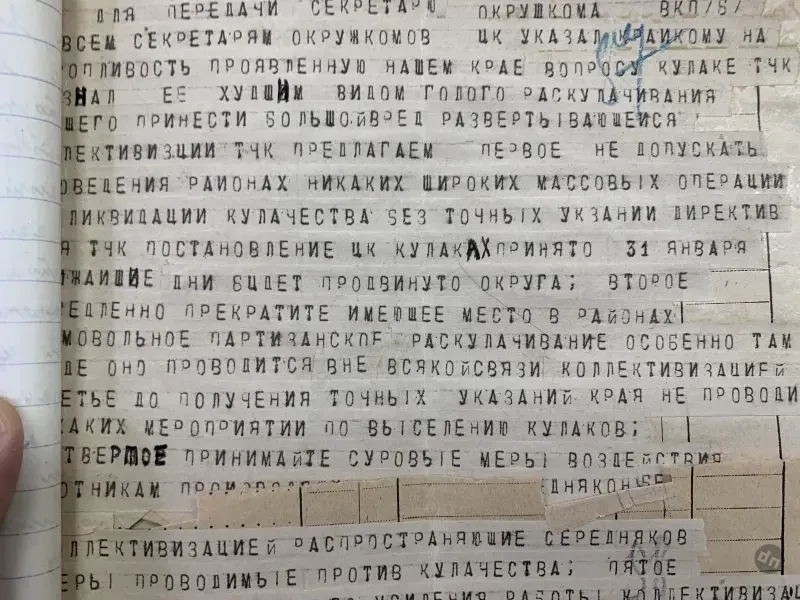 ДЛЯ ПЕРЕДАЧИ СЕКРЕТАРЮ ОКРУШКОМА ВКП/б/
ВСЕМ СЕКРЕТАРЯМ ОКРУЖКОМОВ ЦК УКАЗАЛ НА
ОПЛИВОСТЬ ПРОЯВЛЕННУЮ НАШЕМ КРАЕ ВОПРОСУ КУЛАКЕ ТЧК
ЗНАЛ ЕЕ ХУДШИМ ВИДОМ ГОЛОГО РАСКУЛАЧИВАНИЯ
ШЕГО ПРИНЕСТИ БОЛЬШОЙВРЕД РАЗВЕРТЫВАЮЩЕЙСЯ
ЛЕКТИВИЗЦИИ ТЧК ПРЕДЛАГАЕМ ПЕРВОЕ НЕ ДОПУСКАТЬ
ОВЕДЕНИЯ РАЙОНАХ НИКАКИХ ШИРОКИХ МАССОВЫХ ОПЕРАЦИИ
ЛИКВИДАЦИИ КУЛАЧЕСТВА БЕЗ ТОЧНЫХ УКЗАНИИ ДИРЕКТИВ
Я ТЧК ПОСТАНОВЛЕНИЕ ЦК КУЛАКАХПРИНЯТО 31 ЯНВАРЯ
ИЖАИШИЕ ДНИ БУДЕТ ПРОДВИНУТО ОКРУГА; ВТОРОЕ
ЕДЛЕННО ПРЕКРАТИТЕ ИМЕЮЩЕЕ МЕСТО В РАЙОНАХ
МОВОЛЬНОЕ ПАРТИЗАНСКОЕ РАСКУЛАЧИВАНИЕ ОСОБЕННО ТАМ
ДЕ ОНО ПРОВОДИТСЯ ВНЕ ВСЯКОЙСВЯЗИ КОЛЛЕКТИВИЗАЦИЕЙ
ЕТЬЕ ДО ПОЛУЧЕНИЯ ТОЧНЫХ УКАЗАНИЙ КРАЯ НЕ ПРОВОДИ
КАКИХ МЕРОПРИЯТИИ ПО ВЫСЕЛЕНИЮ КУЛАКОВ;
ТВЕРТОЕ ПРИНИМАЙТЕ СУРОВЫЕ МЕРЫ ВОЗДЕЙСТВИЯ
ОТНИКАМ
ЛЛЕКТИВИЗАЦИЕЙ РАСПРОСТРАНЯЮЩИЕ СЕРЕДНЯКОВ
ЕРЫ ПРОВОДИМЫЕ ПРОТИВ КУЛАЧЕСТВА; ПЯТОЕ
УСИЛЕНИЯ РАБОТЫ КОЛЛЕКТИВИЗАЦ
dn